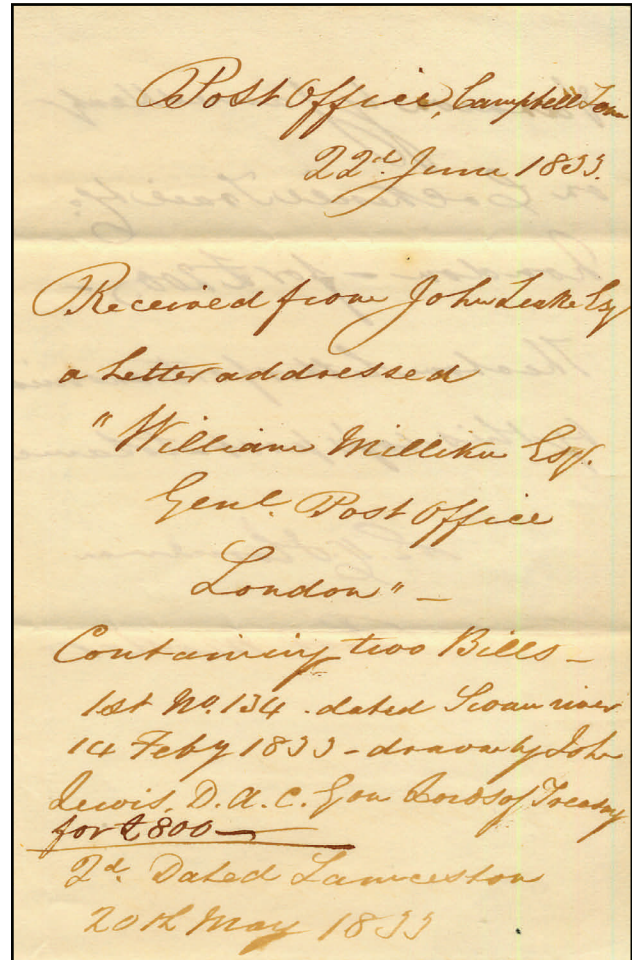 Post Office, Campbell Town
22d. June 1833.
Received from John Leake Esq
a Letter addressed
"William Milliken Esq.
Genl. Post Office
London" –
Containing two Bills –
1st No. 134 dated Swan river
14 Feby 1833 – drawn by John
Lewis, D.A.C. Gen Lords of Treasury
for £800 –
2d. Dated Launceston
20th May 1833